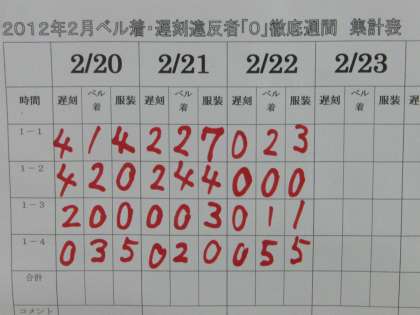 2012年2月ベル着・遅刻違反者「0」徹底週間 集計表
2/20 2/21 2/22 2/23
時間 遅刻 ベル着 服装 遅刻 ベル着 服装 遅刻 ベル着 服装 遅刻 ベル着 服装
1-1 4 1 4 2 2 7 0 2 3
1-2 4 2 0 2 4 4 0 0 0
1-3 2 0 0 0 0 3 0 1 1
1-4 0 3 5 0 2 0 0 5 5
合計
コメント